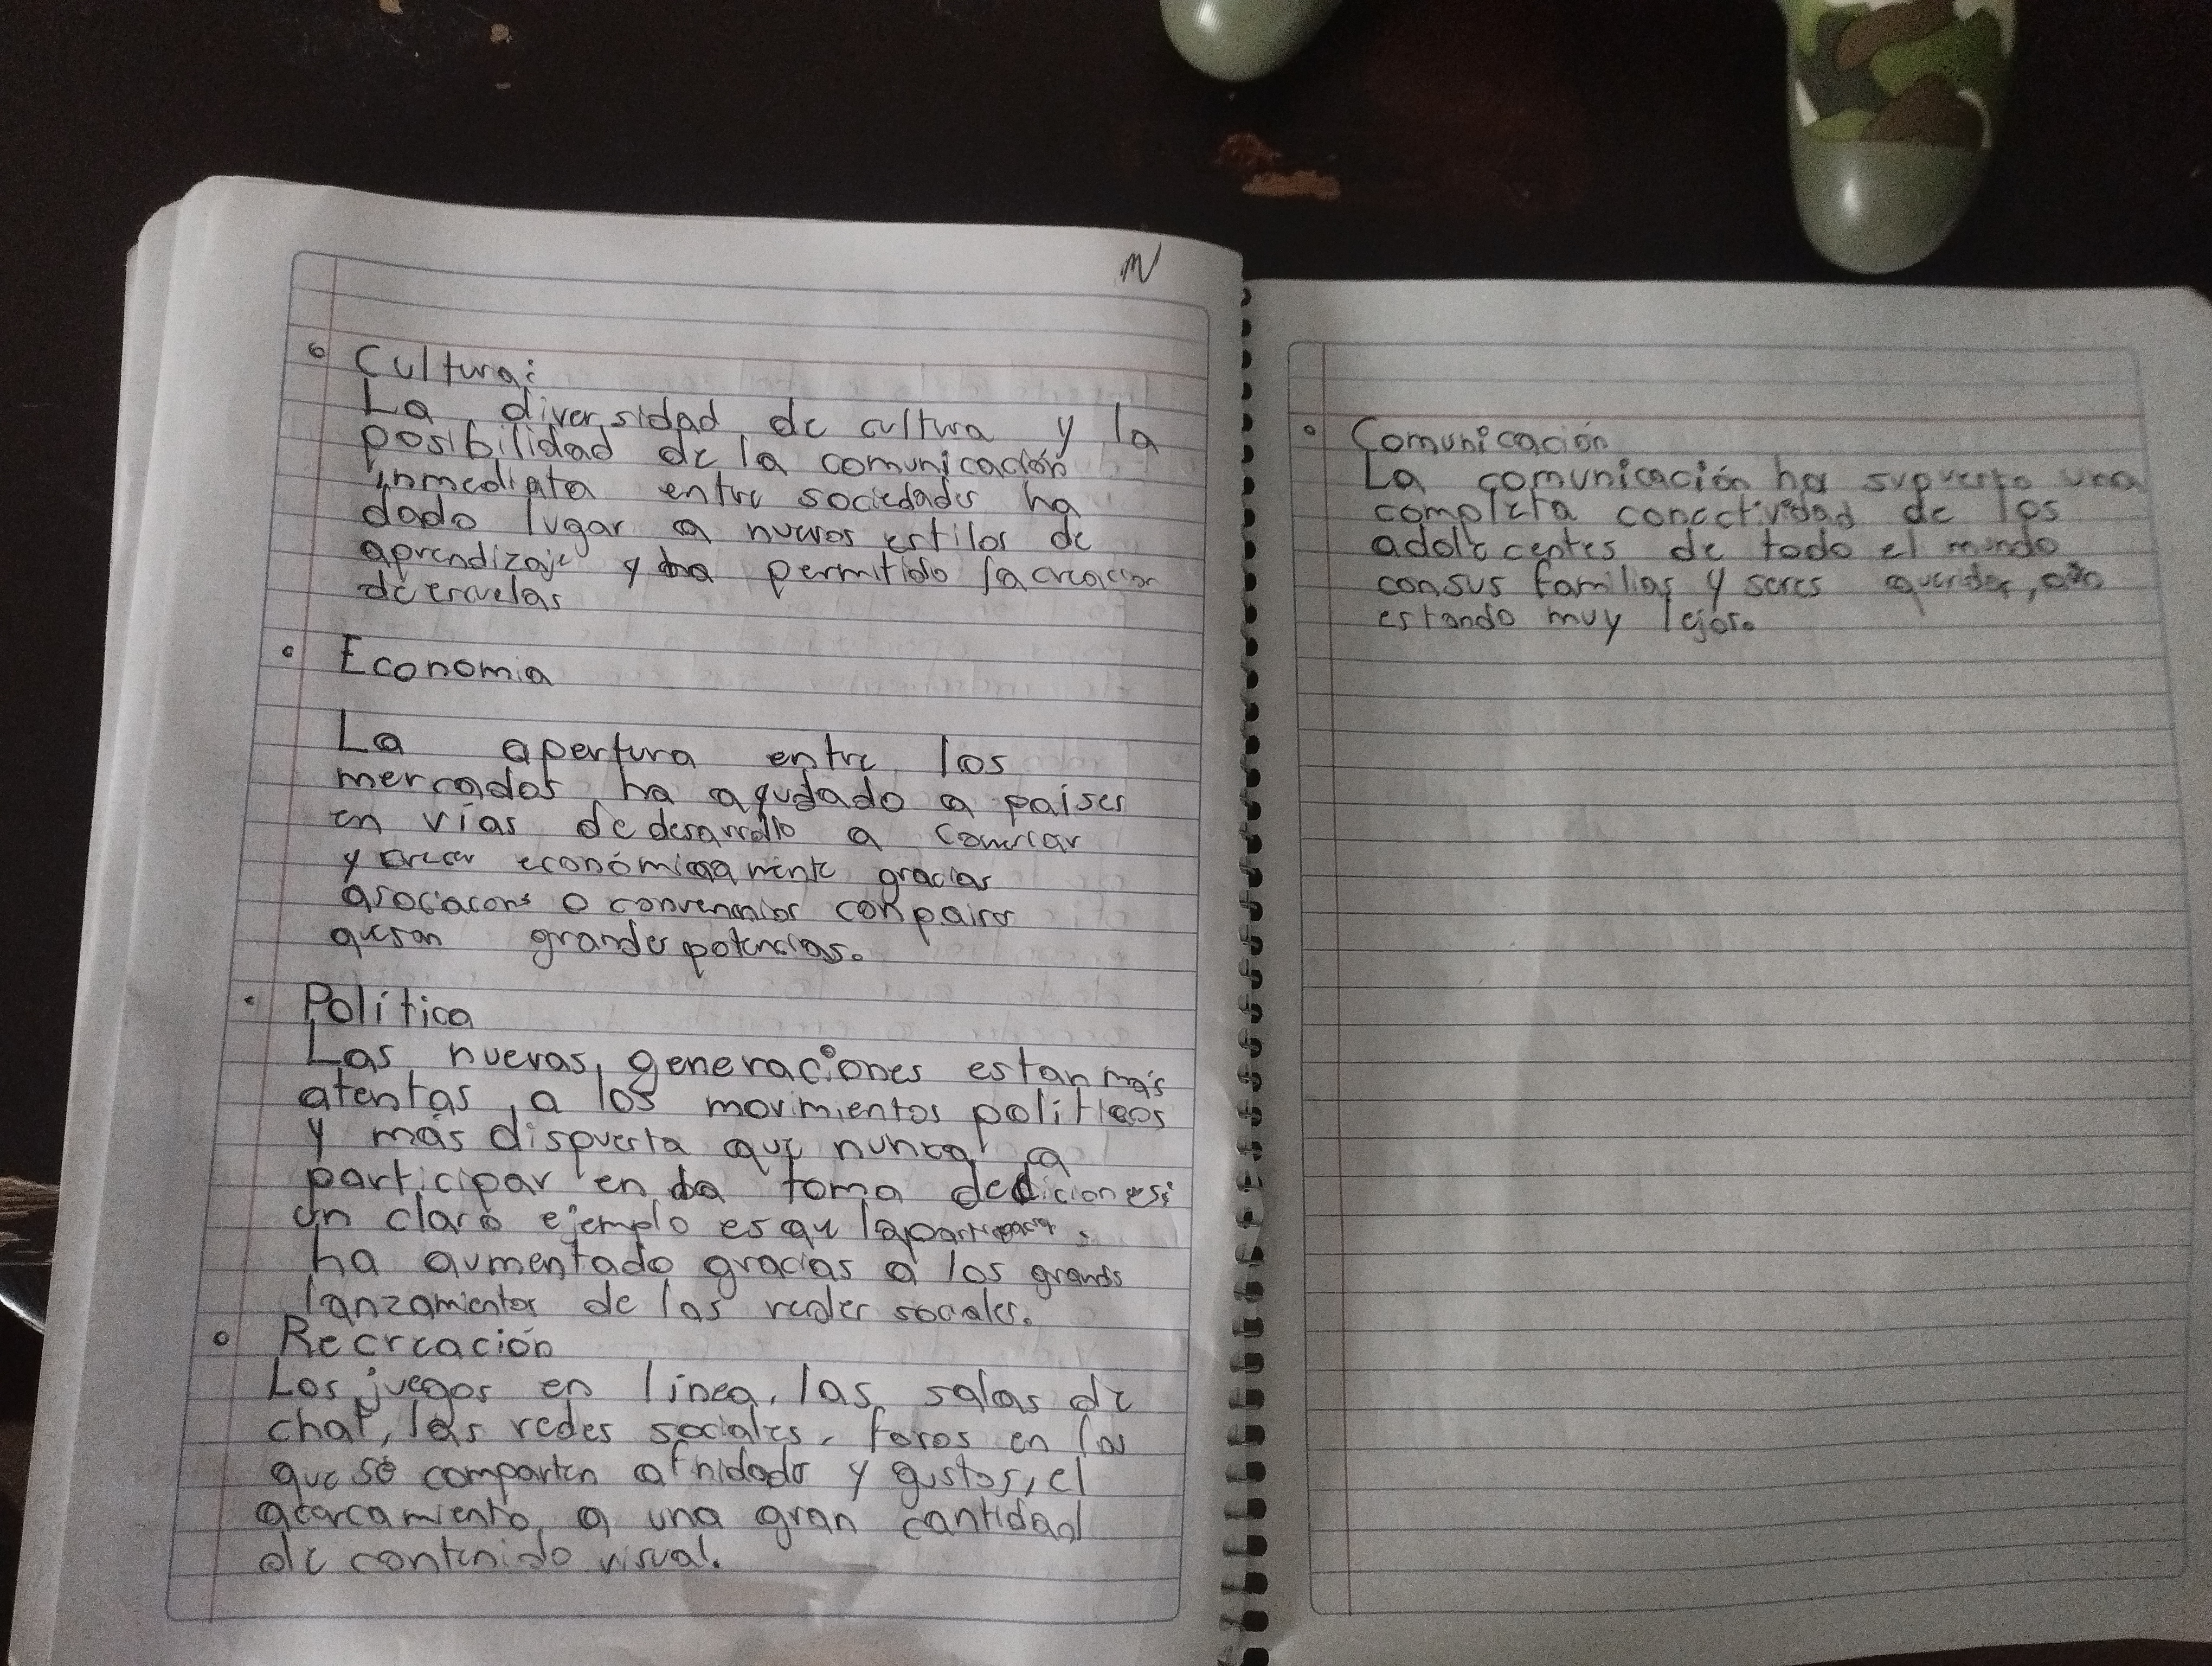 N
Cultura:
La diversidad de cultura y la
posibilidad de la comunicación
inmediata entre sociedades ha
dado lugar a nuevos estilos de
aprendizaje y ha permitido la creación
de escuelas
Economia
La apertura entre los
mercados ha ayudado a países
en vías de desarrollo a
y crecer económicamente gracias
o convenios con paises
que son grandes potencias.
Política
Las nuevas generaciones estan más
atentas a los movimientos políticos
y más dispuesta que nunca a
participar en la toma
un claro ejemplo es que la
ha aumentado gracias a los grands
lanzamientos de las redes sociales.
Recreación
Los juegos en línea, las salas de
chat, las redes sociales, foros en los
que se comparten afinidades y gustos, el
acercamiento a una gran cantidad
de contenido visual.
Comunicación
La comunicación ha supuesto una
completa conectividad de los
adolecentes de todo el mundo
con sus familias y seres queridos, aún
estando muy lejos.